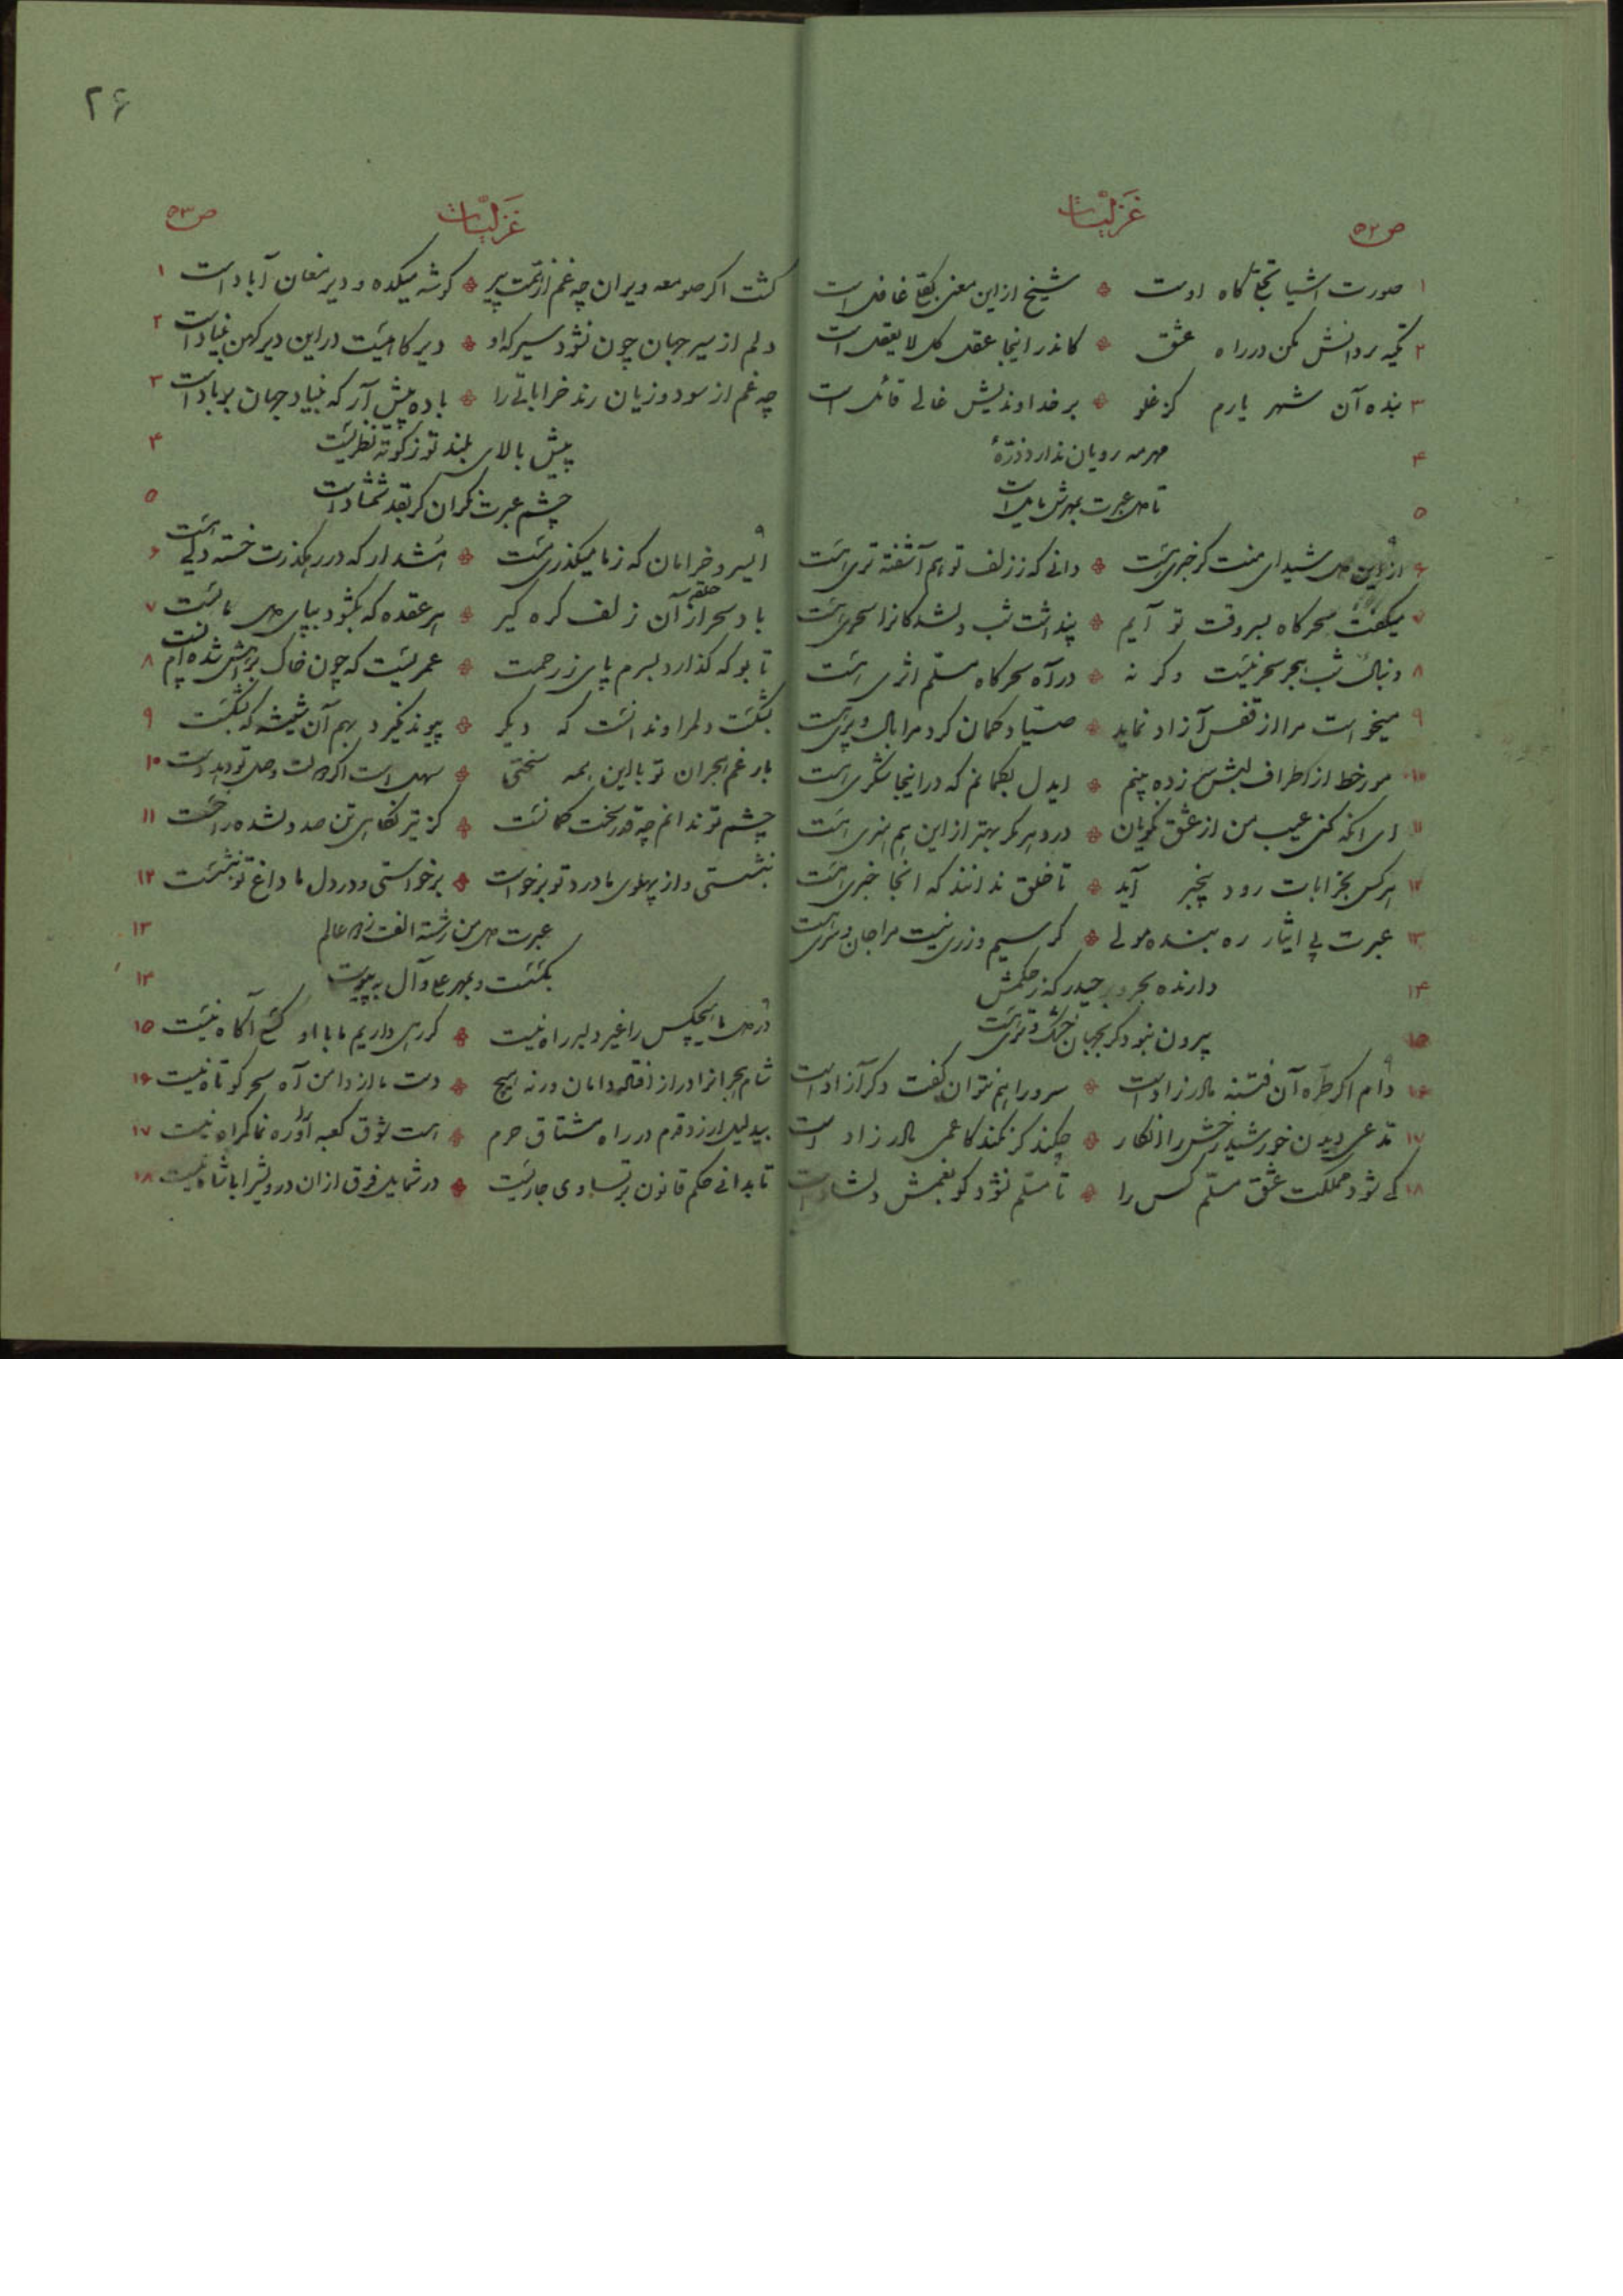 غزلیات
ص ۵۲
۱ صورت اشیا تجلّا کاه اوست * شیخ از این معنی بکلّی غافل است
۲ تکیه بر دانش مکن در راه عشق * کاندر اینجا عقل کل لا یعقل است
۳ بنده آن شهر یارم کز غلو * بر خداوندیش غالی قائل است
۴ مهر مه رویان ندارد ذرّهٔ
۵ تا دل عبرت بمهرش مایل است
۶ از این دل شیدای منت کر خبری هست * دانی که ز زلف تو هم آشفته تری هست
۷ میکفت سحرکاه بسروقت تو آیم * پنداشت شب دلشدکانرا سحری هست
۸ دنبال شب هجر سحر نیست و کر نه * در آه سحرکاه مسلّم اثری هست
۹ میخواست مرا از قفس آزاد نماید * صیّاد کمان کرد مرا بال و پری هست
۱۰ مور خط از اطراف لبش سر زده بینم * ایدل بکمانم که در اینجا شکری هست
۱۱ ای انکه کنی عیب من از عشق نکویان * در دهر مکر بهتر از این هم هنری هست
۱۲ هر کس بخرابات رود بیخبر آید * تا خلق ندانند که انجا خبری هست
۱۳ عبرت پی ایثار ره بنده مولی * کر سیم و زری نیست مرا جان و سری هست
۱۴ دارنده بحر و بر حیدر که ز حکمش
۱۵ بیرون نبود کر بجهان خشک و تری هست
۱۶ دام اکر طرّه آن فتنه مادر زاد است * سرو را هم نتوان کفت دکر آزاد است
۱۷ مدّعی دیدن خورشید رخش را انکار * چکند کر نکند کاعمی مادر زاد است
۱۸ کی شود مملکت عشق مسلّم کس را * تا مسلّم نشود کو بغمش دلشاد است
۲۶
غزلیات
ص ۵۳
کشت اکر صومعه ویران چه غم از همّت پیر * کوشه میکده و دیر مغان آباد است ۱
دلم از سیر جهان چون نشود سیر که او * دیر کاهیست در این دیر کهن بنیاد است ۲
چه غم از سود و زیان رند خراباتی را * باده پیش آر که بنیاد جهان بر باد است ۳
پیش بالای بلند تو ز کوته نظریست ۴
چشم عبرت نکران کر بقد شمشاد است ۵
ایسرو خرامان که ز ما میکذری مست * هشدار که در رهکذرت خسته دلی هست ۶
باد سحر از حلقه آن زلف کره کیر * هر عقده که بکشود بپای دل ما بست ۷
تا بو که کذارد بسرم پای ز رحمت * عمریست که چون خاک براهش شده ام پست ۸
بشکست دلم را و ندانست که دیکر * پیوند نکیرد بهم آن شیشه که بشکست ۹
بار غم هجران تو با این همه سختی * سهل است اکر دولت وصل تو دهد دست ۱۰
چشم تو ندانم چه قدر سخت کمانست * کز تیر نکاهی تن صد دلشده را خست ۱۱
بنشستی و از پهلوی ما درد تو برخواست * برخواستی و در دل ما داغ تو بنشست ۱۲
عبرت دل من رشته الفت ز همه عالم ۱۳
بکسست و بمهر علی و آل به پیوست ۱۴
در دل ما هیچکس را غیر دلبر راه نیست * کر رهی داریم ما با او کسی آکاه نیست ۱۵
شام هجرانرا دراز افتاده دامان ور نه هیچ * دست ما از دامن آه سحر کوتاه نیست ۱۶
بیدلیل ار زد قدم در راه مشتاق حرم * هست شوق کعبه آواره نما کمراه نیست ۱۷
تا بدانی حکم قانون بر تساوی جاریست * در شمایل فرق از ان درویش را با شاه نیست ۱۸